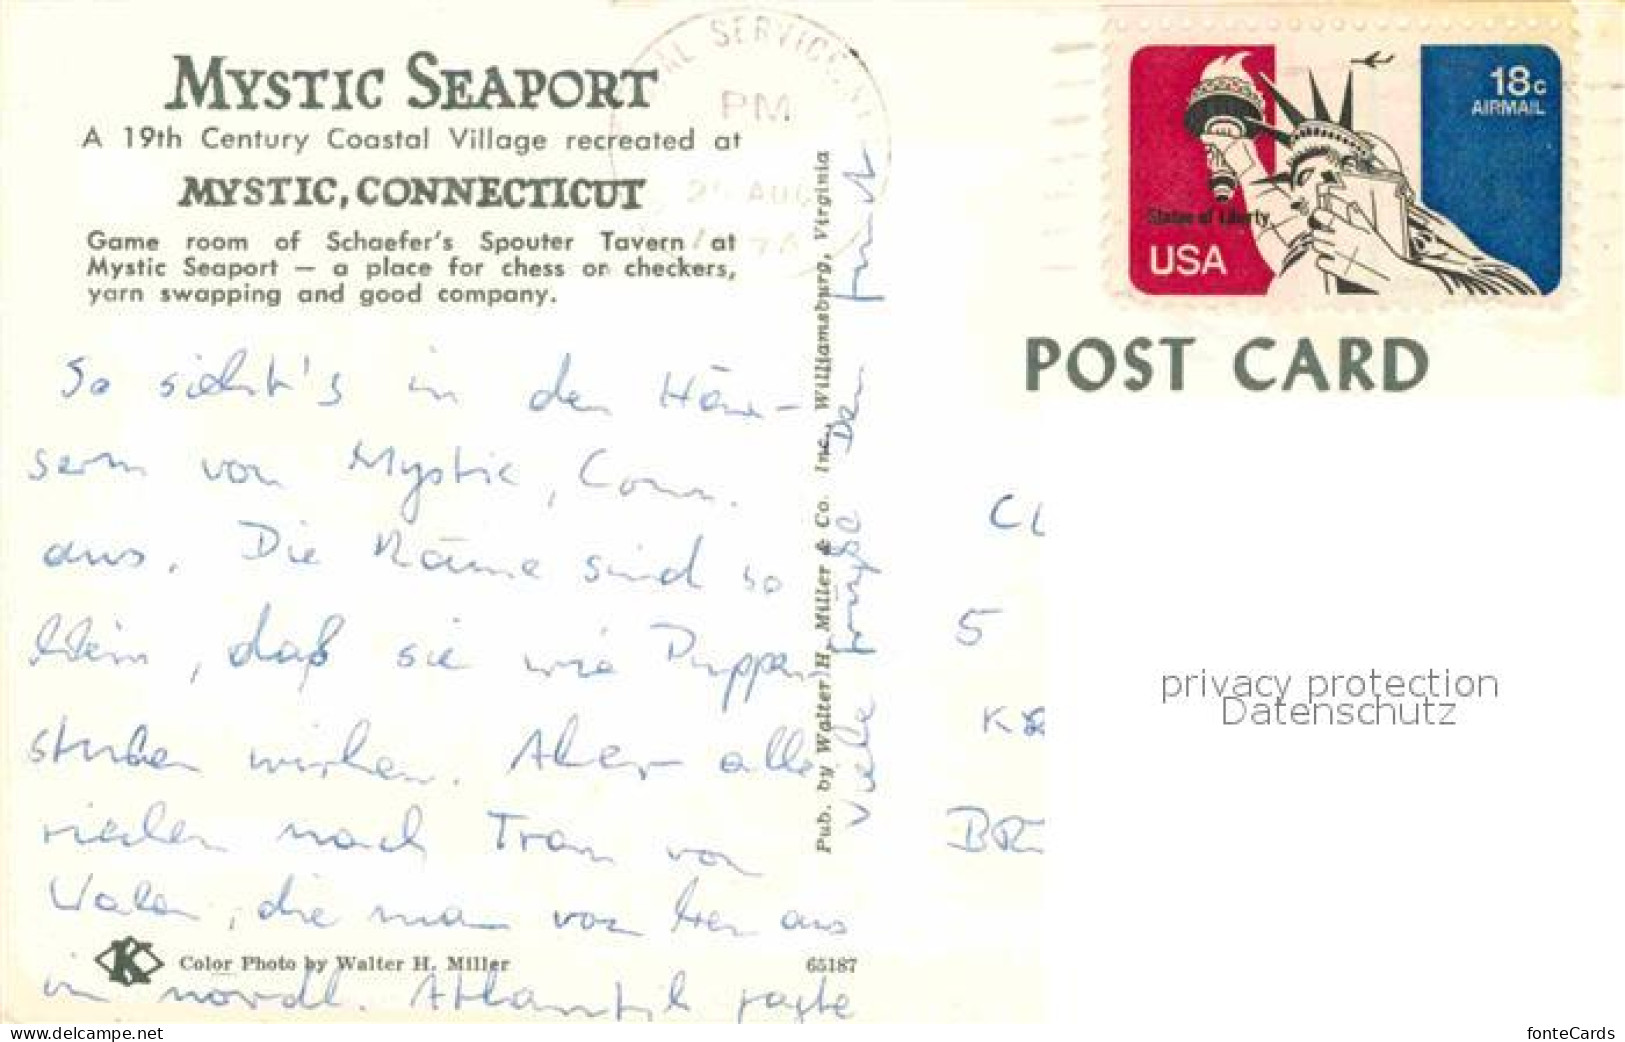 MYSTIC SEAPORT
A 19th Century Coastal Village recreated at
MYSTIC, CONNECTICUT
Game room of Schaefer's Spouter Tavern at
Mystic Seaport — a place for chess or checkers,
yarn swapping and good company.
SERVICE
PM
AUG
18c
AIRMAIL
Statue of Liberty
USA
POST CARD
So sieht's in den Häu-
sern von Mystic, Conn.
aus. Die Räume sind so
klein, daß sie wie Puppen
stuben wirken. Aber alle
riechen nach Tran von
Walen, die man von hier aus
im nördl. Atlantik jagte
Viele Grüße Dein
Pub. by Walter H. Miller & Co. Inc., Williamsburg, Virginia
CL
5
BR
privacy protection
Datenschutz
K
Color Photo by Walter H. Miller
65187
www.delcampe.net
fonteCards